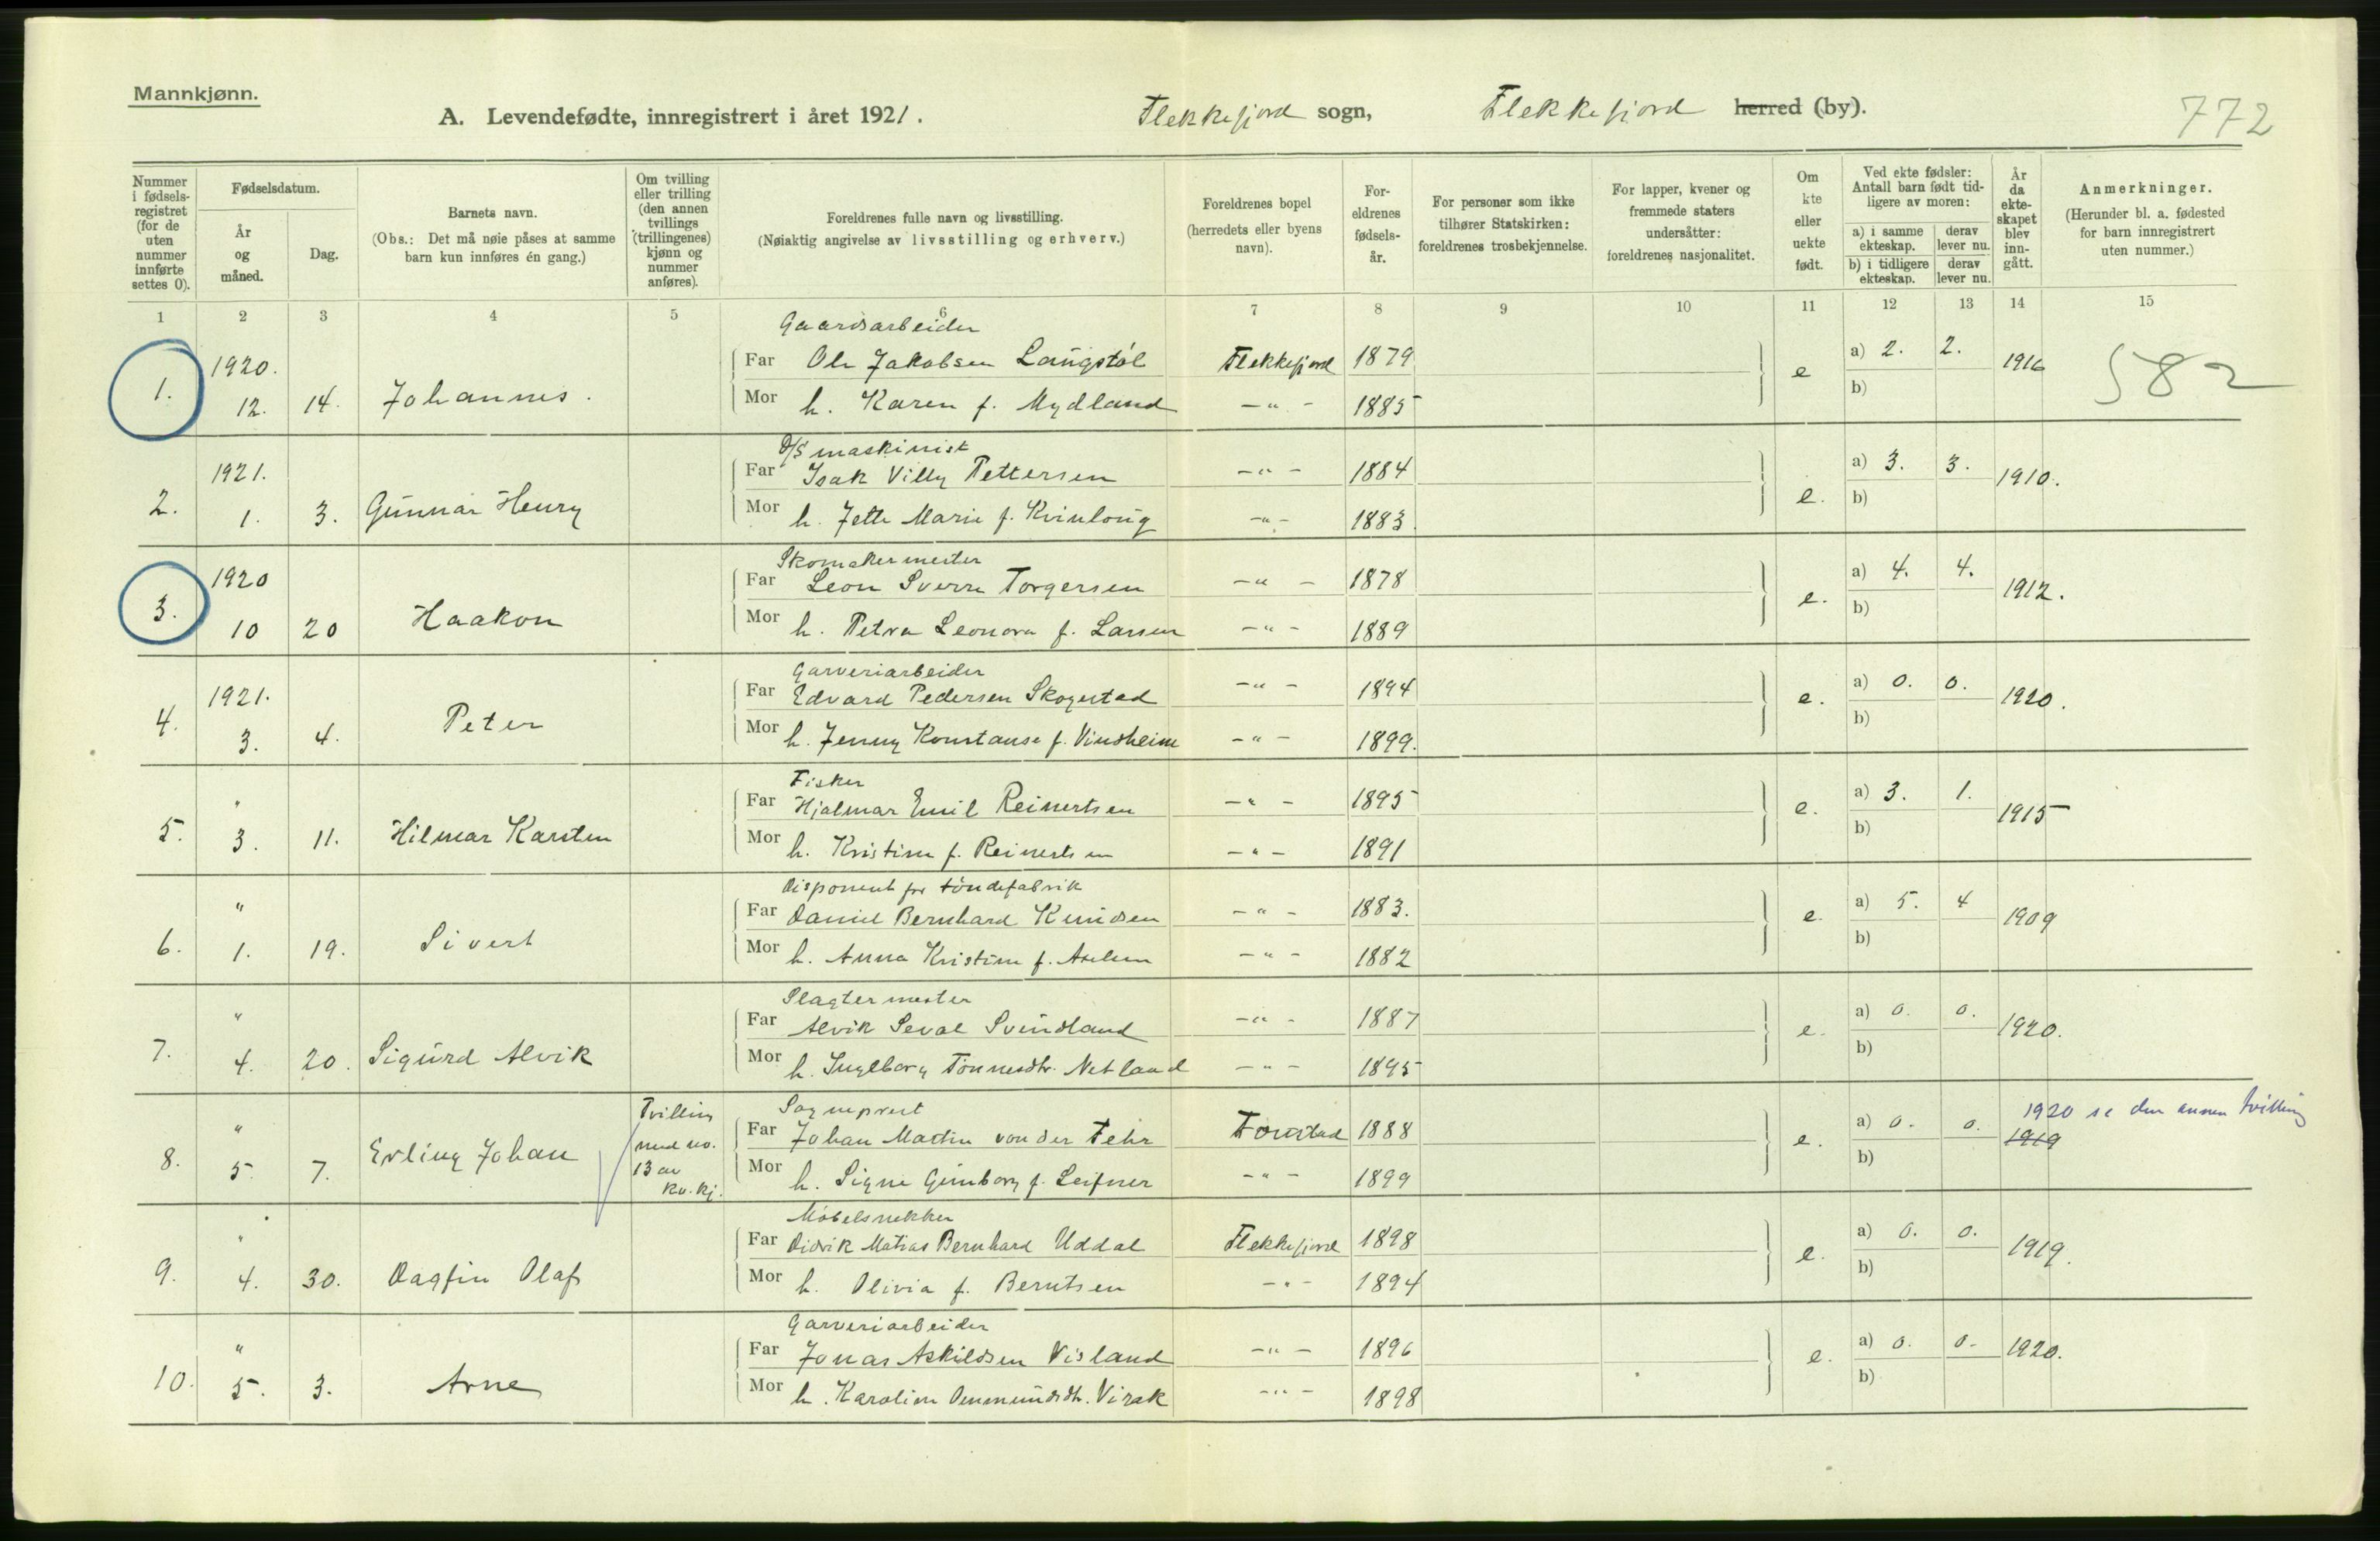 Mannkjønn.
A. Levendefødte, innregistrert i året 1921. Flekkefjord sogn, Flekkefjord herred (by).
772
Nummer i fødselsregistret (for de uten nummer innførte settes 0).
Fødselsdatum.
År og måned.
Dag.
Barnets navn.
(Obs.: Det må nøie påses at samme barn kun innføres én gang.)
Om tvilling eller trilling (den annen tvillings (trillingenes) kjønn og nummer anføres).
Foreldrenes fulle navn og livsstilling.
(Nøiaktig angivelse av livsstilling og erhverv.)
Foreldrenes bopel (herredets eller byens navn).
Foreldrenes fødselsår.
For personer som ikke tilhører Statskirken: foreldrenes trosbekjennelse.
For lapper, kvener og fremmede staters undersåtter: foreldrenes nasjonalitet.
Om kte eller uekte født.
Ved ekte fødsler: Antall barn født tidligere av moren:
a) i samme ekteskap. derav lever nu.
b) i tidligere ekteskap. derav lever nu.
År da ekteskapet blev inngått.
Anmerkninger.
(Herunder bl. a. fødested for barn innregistrert uten nummer.)
1 2 3 4 5 6 7 8 9 10 11 12 13 14 15
Gaardsarbeider
1. 1920. Far Ole Jakobsen Langstøl Flekkefjord 1879 e a) 2. 2. 1916 582
12. 14. Johannes. Mor h. Karen f. Mydland -"- 1885 b)
D/S maskinist
1921. Far Isak Villy Pettersen -"- 1884 a) 3. 3. 1910.
2. 1. 3. Gunnar Henry Mor h. Jette Marie f. Kvinloug -"- 1883. e. b)
Skomakermester
3. 1920 Far Leon Sverre Torgersen -"- 1878 e. a) 4. 4. 1912.
10 20 Haakon Mor h. Petra Leonora f. Larsen -"- 1889 b)
Garveriarbeider
1921. Far Edvard Pedersen Skogestad -"- 1894 e. a) 0. 0. 1920.
4. 3. 4. Peter Mor h. Jenny Konstanse f. Vindheim -"- 1899. b)
Fisker
" Far Hjalmar Emil Reinertsen -"- 1895 e. a) 3. 1. 1915
5. 3. 11. Hilmar Karsten Mor h. Kristine f. Reinertsen -"- 1891 b)
Disponent for tøndefabrik
" Far Daniel Bernhard Knudsen -"- 1883. e. a) 5. 4 1909
6. 1. 19. Sivert Mor h. Anna Kristine f. -"- 1882 b)
Slagtermester
" Far Alvik Seval Svindland -"- 1887 e. a) 0. 0. 1920.
7. 4. 20. Sigurd Alvik Mor h. Ingeborg Tønnesdtr. Netland -"- 1895 b)
Tvilling med no. 13 av kv. kj.
Sogneprest
1920 se den annen tvilling
" Far Johan Martin von der Fehr 1888 e. a) 0. 0. 1919
8. 5. 7. Erling Johan Mor h. Signe Gunborg f. -"- 1899 b)
Møbelsnekker
" Far Didrik Matias Bernhard Uddal Flekkefjord 1898 e. a) 0. 0. 1919.
9. 4. 30. Dagfin Olaf Mor h. Olivia f. Berntsen -"- 1894 b)
Garveriarbeider
" Far Jonas Askildsen Visland -"- 1896 e. a) 0. 0. 1920.
10. 5. 3. Arne Mor h. Karoline Ommundsdtr. Virak -"- 1898 b)